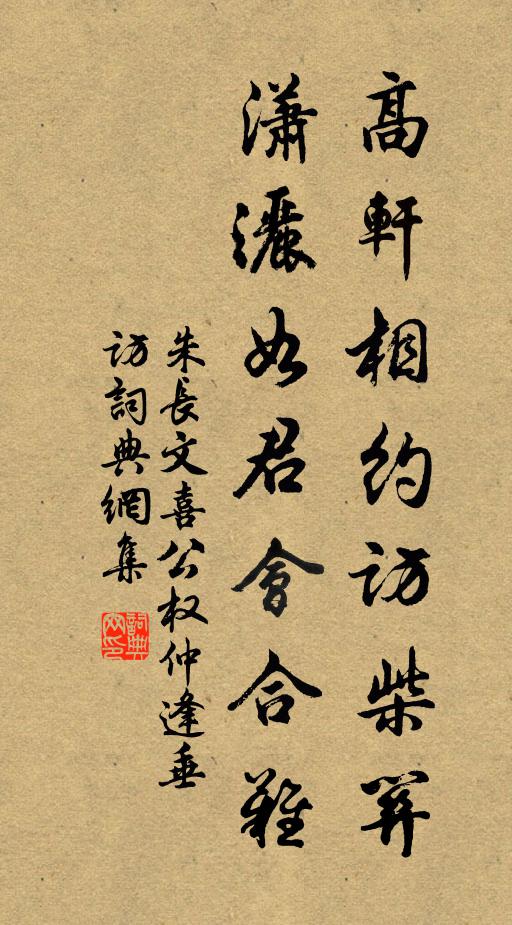 高軒相約訪柴關
瀟灑如君會合難
朱長文喜公权仲逢垂
訪詞典網集
詞典網印